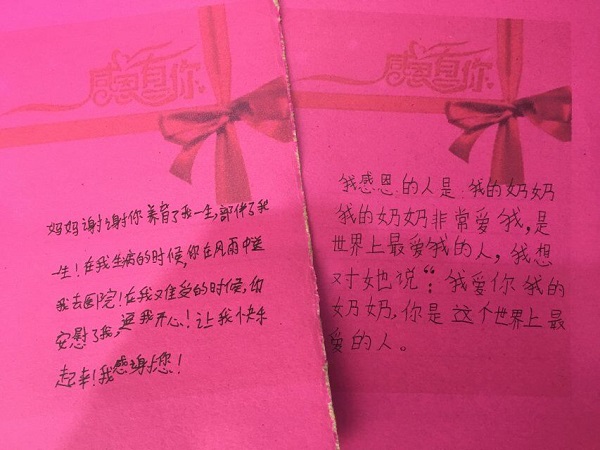 感恩有你
妈妈谢谢你养育了我一生,陪伴了我
一生!在我生病的时候,你在风雨中送
我去医院!在我难受的时候,你
安慰了我,逗我开心!让我快乐
起来!我感谢您!
感恩有你
我感恩的人是我的奶奶
我的奶奶非常爱我,是
世界上最爱我的人,我想
对她说“:我爱你我的
奶奶,你是这个世界上最
爱的人。